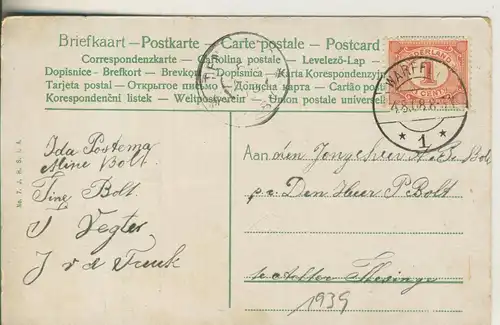 Briefkaart — Postkarte — Carte postale — Postcard
Correspondenzkarte — Cartolina postale — Levelező-Lap
Dopisnice - Brefkort — Brevkort — Dopisnica — Karta Korespondencyjna
Tarjeta postal — Открытое письмо — Дописна карта — Cartão postal
Korespondenční listek — Weltpostverein — Union postale universelle
NEDERLAND
1
CENT
WARFF
1
Ida Postema
Mine Bolt.
Tine Bolt.
J Vegter
J v d
No. 7. J. H. S. i. A.
Aan den Jongeheer
p/a Den Heer P Bolt
te Thesinge
1939